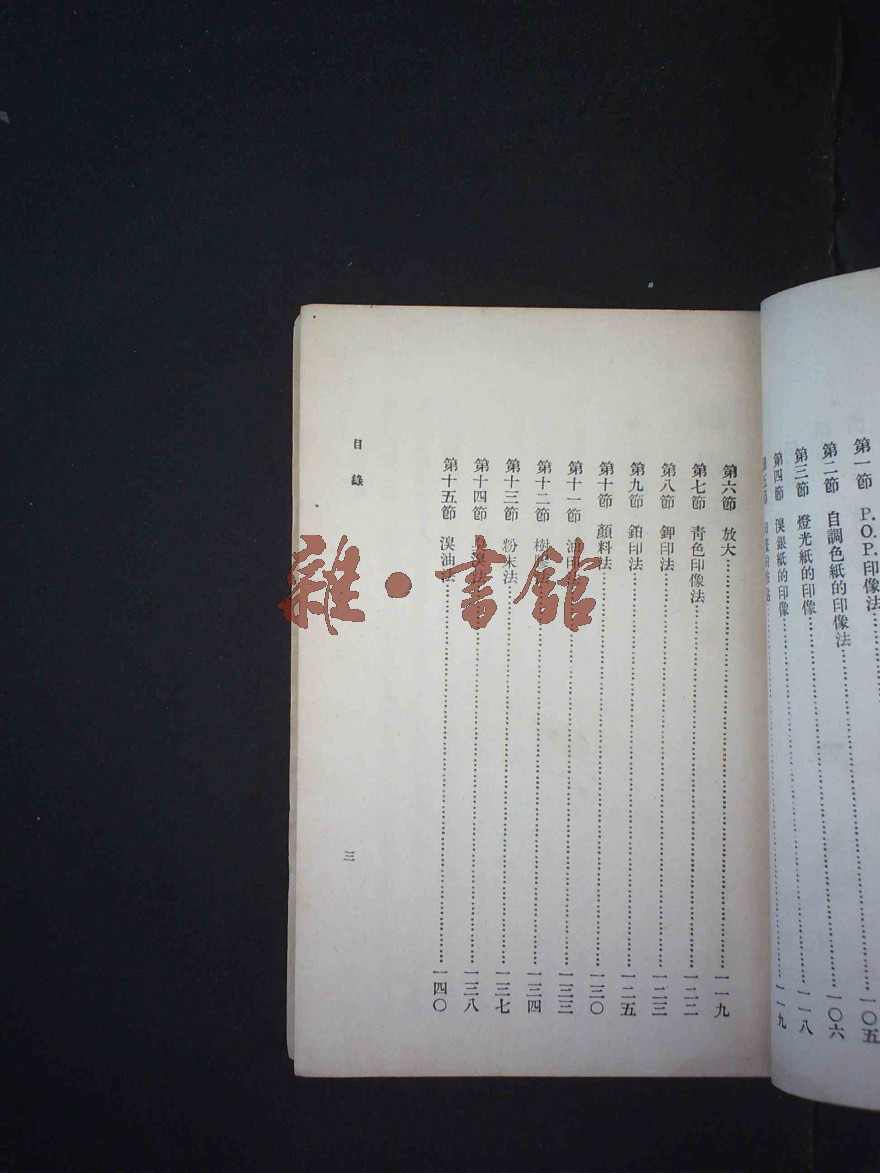 第一節 P.O.P.印像法……一〇五
第二節 自調色紙的印像法……一〇六
第三節 燈光紙的印像……一一八
第四節 溴銀紙的印像……一一九
第六節 放大……一一九
第七節 靑色印像法……一二二
第八節 鉀印法……一二三
第九節 鉑印法……一二五
第十節 顏料法……一三〇
第十一節 油印法……一三三
第十二節 樹膠法……一三四
第十三節 粉末法……一三七
第十四節 溴法……一三八
第十五節 溴油法……一四〇
目錄
三
雜·書館